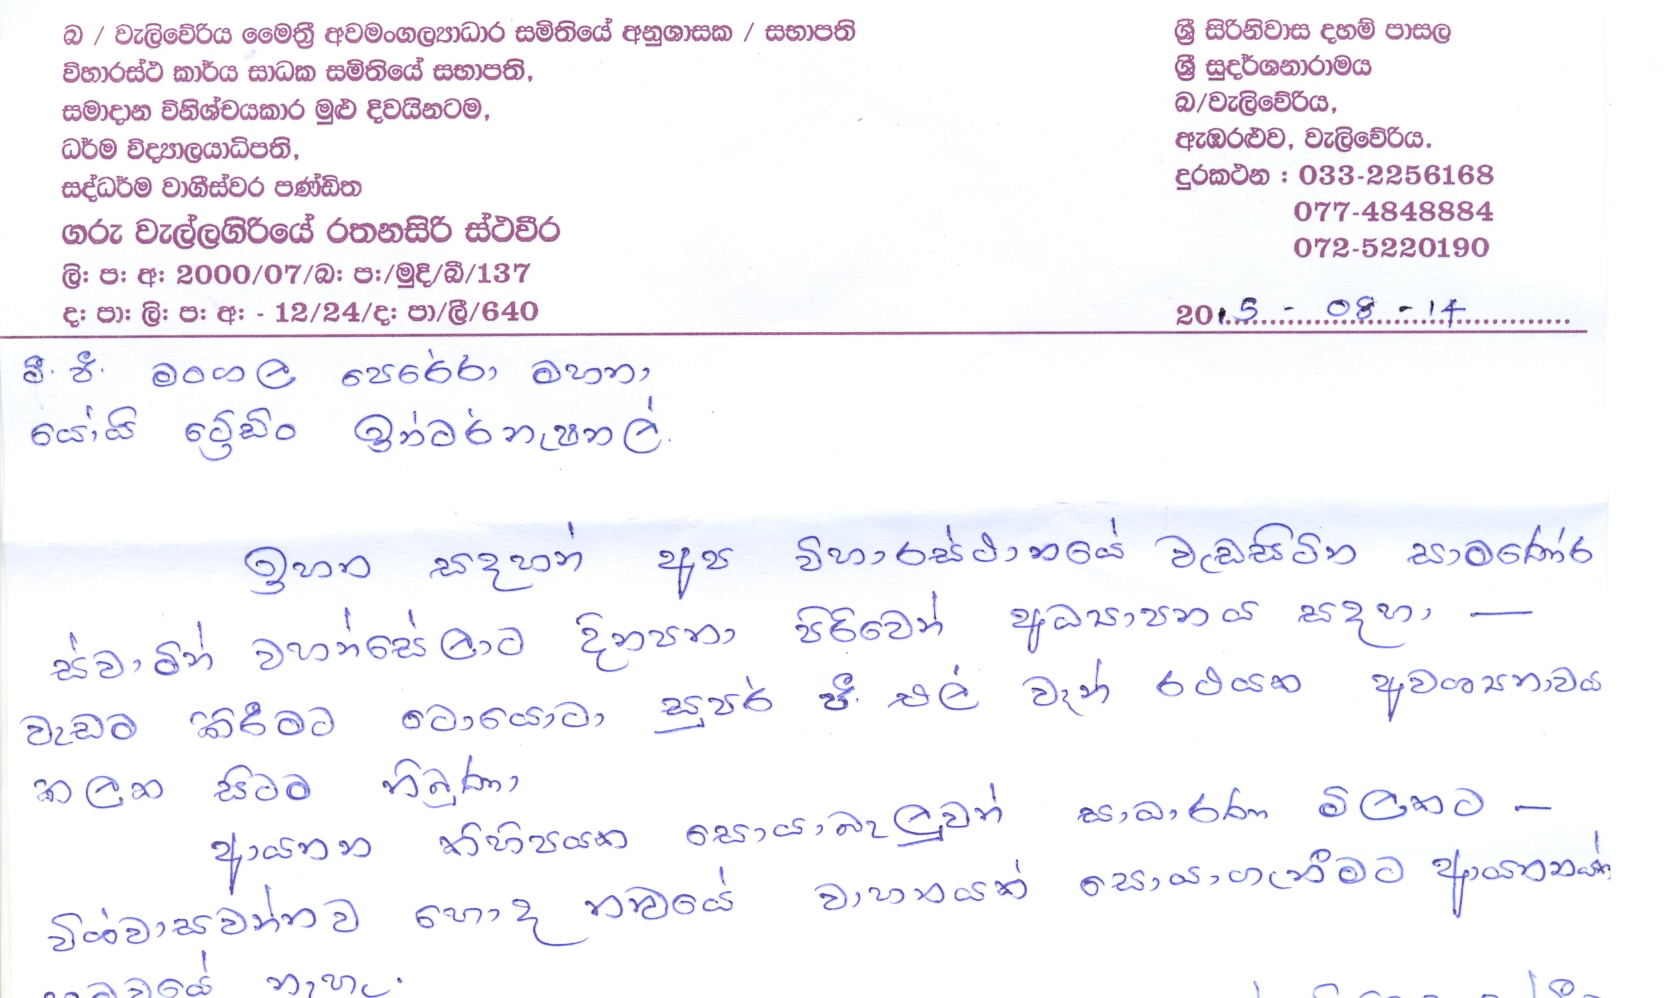 බ / වැලිවේරිය මෛත්‍රී අවමංගල්‍යාධාර සමිතියේ අනුශාසක / සභාපති
විහාරස්ථ කාර්ය සාධක සමිතියේ සභාපති,
සමාදාන විනිශ්චයකාර මුළු දිවයිනටම,
ධර්ම විද්‍යාලයාධිපති,
සද්ධර්ම වාගීස්වර පණ්ඩිත
ගරු වැල්ලගිරියේ රතනසිරි ස්ථවීර
ලි: ප: අ: 2000/07/බ: ප:/මුදි/බී/137
ද: පා: ලි: ප: අ: - 12/24/ද: පා/ලී/640
ශ්‍රී සිරිනිවාස දහම් පාසල
ශ්‍රී සුදර්ශනාරාමය
බ/වැලිවේරිය,
ඇඹරළුව, වැලිවේරිය.
දුරකථන : 033-2256168
077-4848884
072-5220190
2015 - 08 - 14
ජී. මංගල පෙරේරා මහතා
යෝයි ට්‍රේඩිං ඉන්ටර්නැෂනල්.
ඉහත සදහන් අප විහාරස්ථානයේ වැඩසිටින සාමණේර
ස්වාමින් වහන්සේලාට දිනපතා පිරිවෙන් අධ්‍යාපනය සදහා —
වැඩම කිරීමට ටොයොටා සුපර් ජී. එල් වෑන් රථයක අවශ්‍යතාවය
කලක සිටම තිබුණා
ආයතන කිහිපයක සොයාබැලුවත් සාධාරණ මිලකට —
විශ්වාසවන්තව හොද තත්වයේ වාහනයක් සොයාගැනීමට ආයතනයක්
නැහැ.